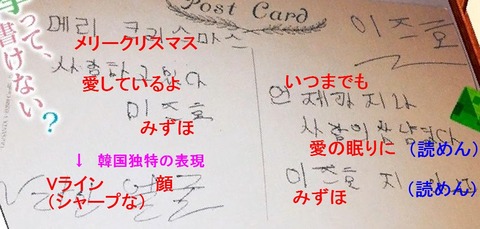 って、
書けない？
Post Card
메리 크리스마스
メリークリスマス
사랑하고있다
愛しているよ
이즈호
みずほ
↓ 韓国独特の表現
Vライン 顔
（シャープな）
얼굴
이즈호
いつまでも
언제까지나
사랑이잠
愛の眠りに （読めん）
이즈호 지
みずほ （読めん）